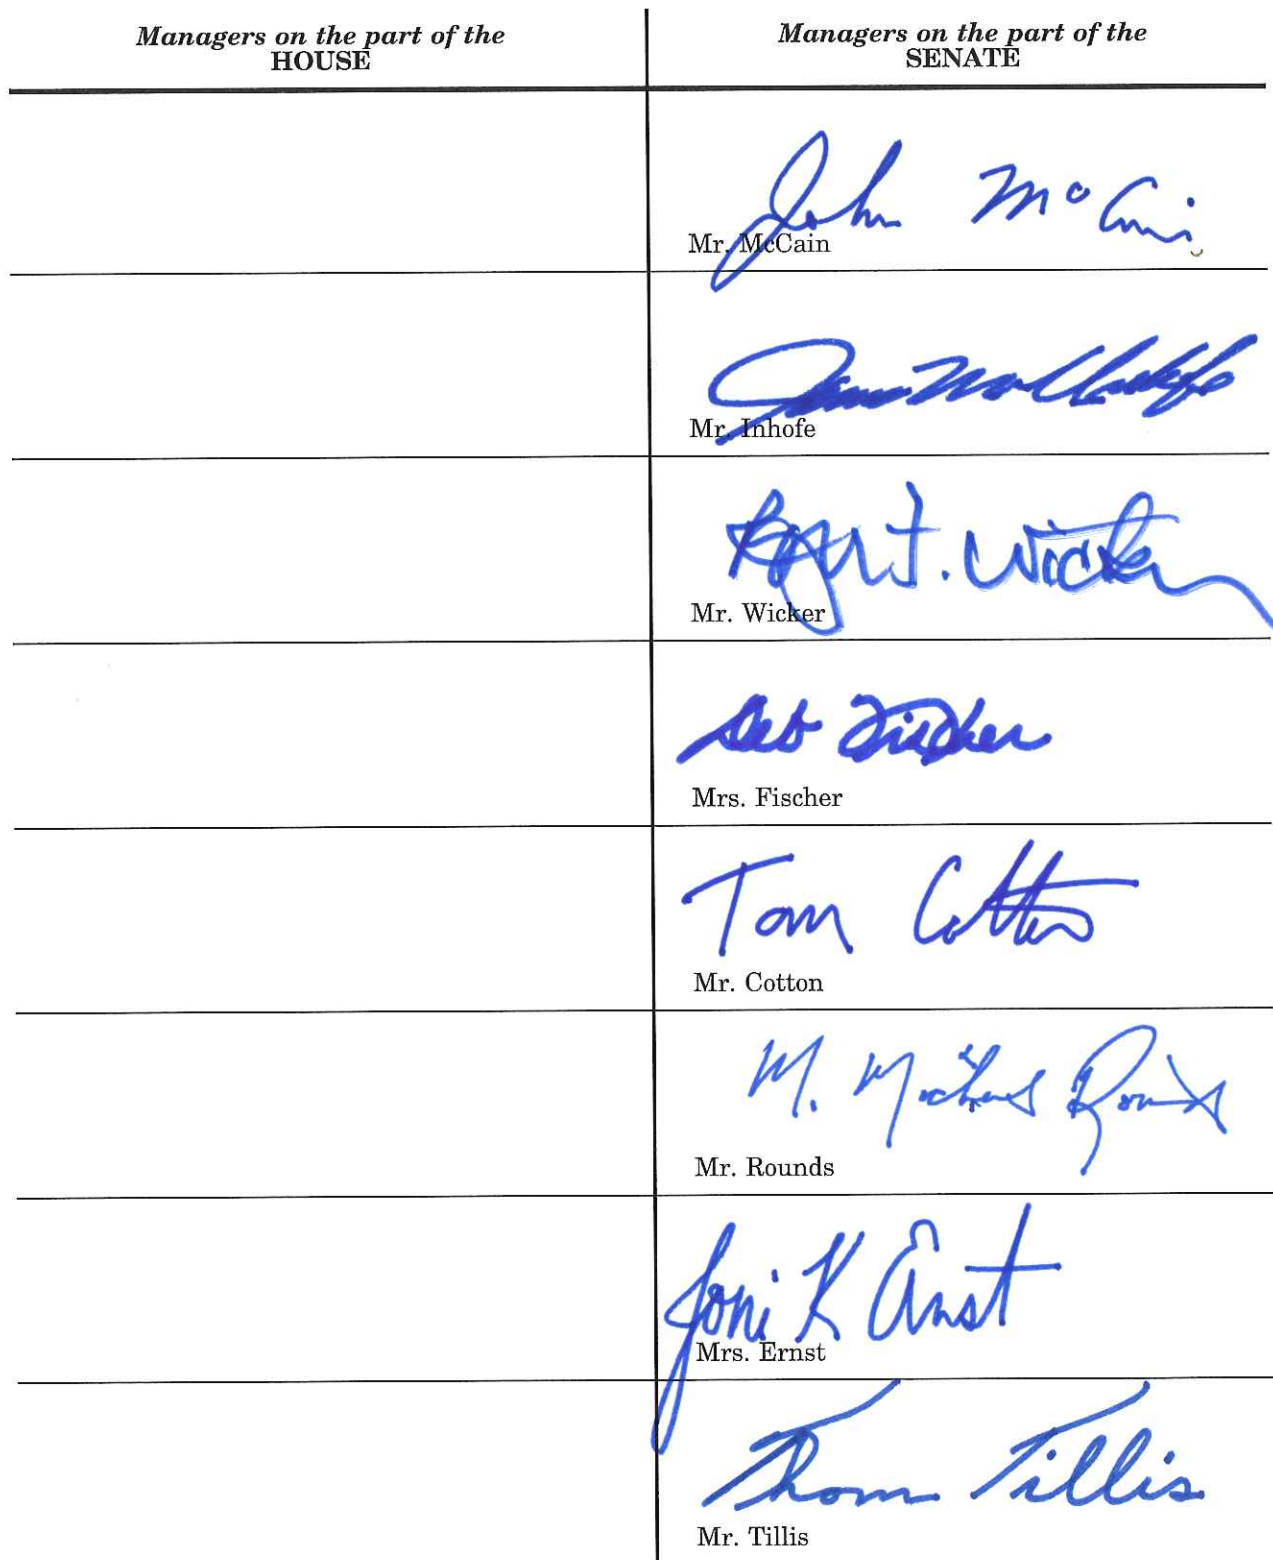 Managers on the part of the
HOUSE
Managers on the part of the
SENATE
John McCain
Mr. McCain
Mr. Inhofe
Roger F. Wicker
Mr. Wicker
Deb Fischer
Mrs. Fischer
Tom Cotton
Mr. Cotton
M. Michael Rounds
Mr. Rounds
Joni K Ernst
Mrs. Ernst
Thom Tillis
Mr. Tillis